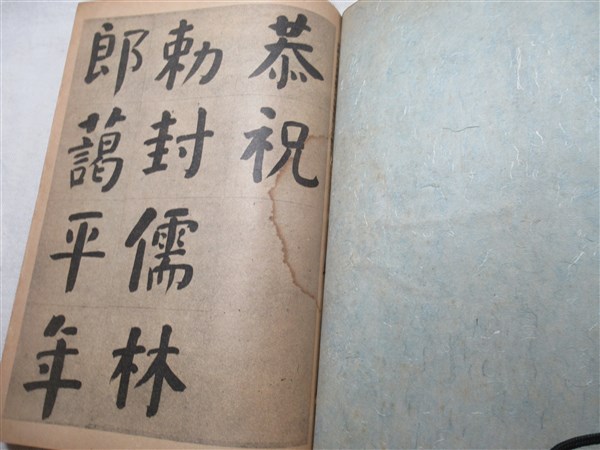 恭祝
勅封儒林
郎藹平年